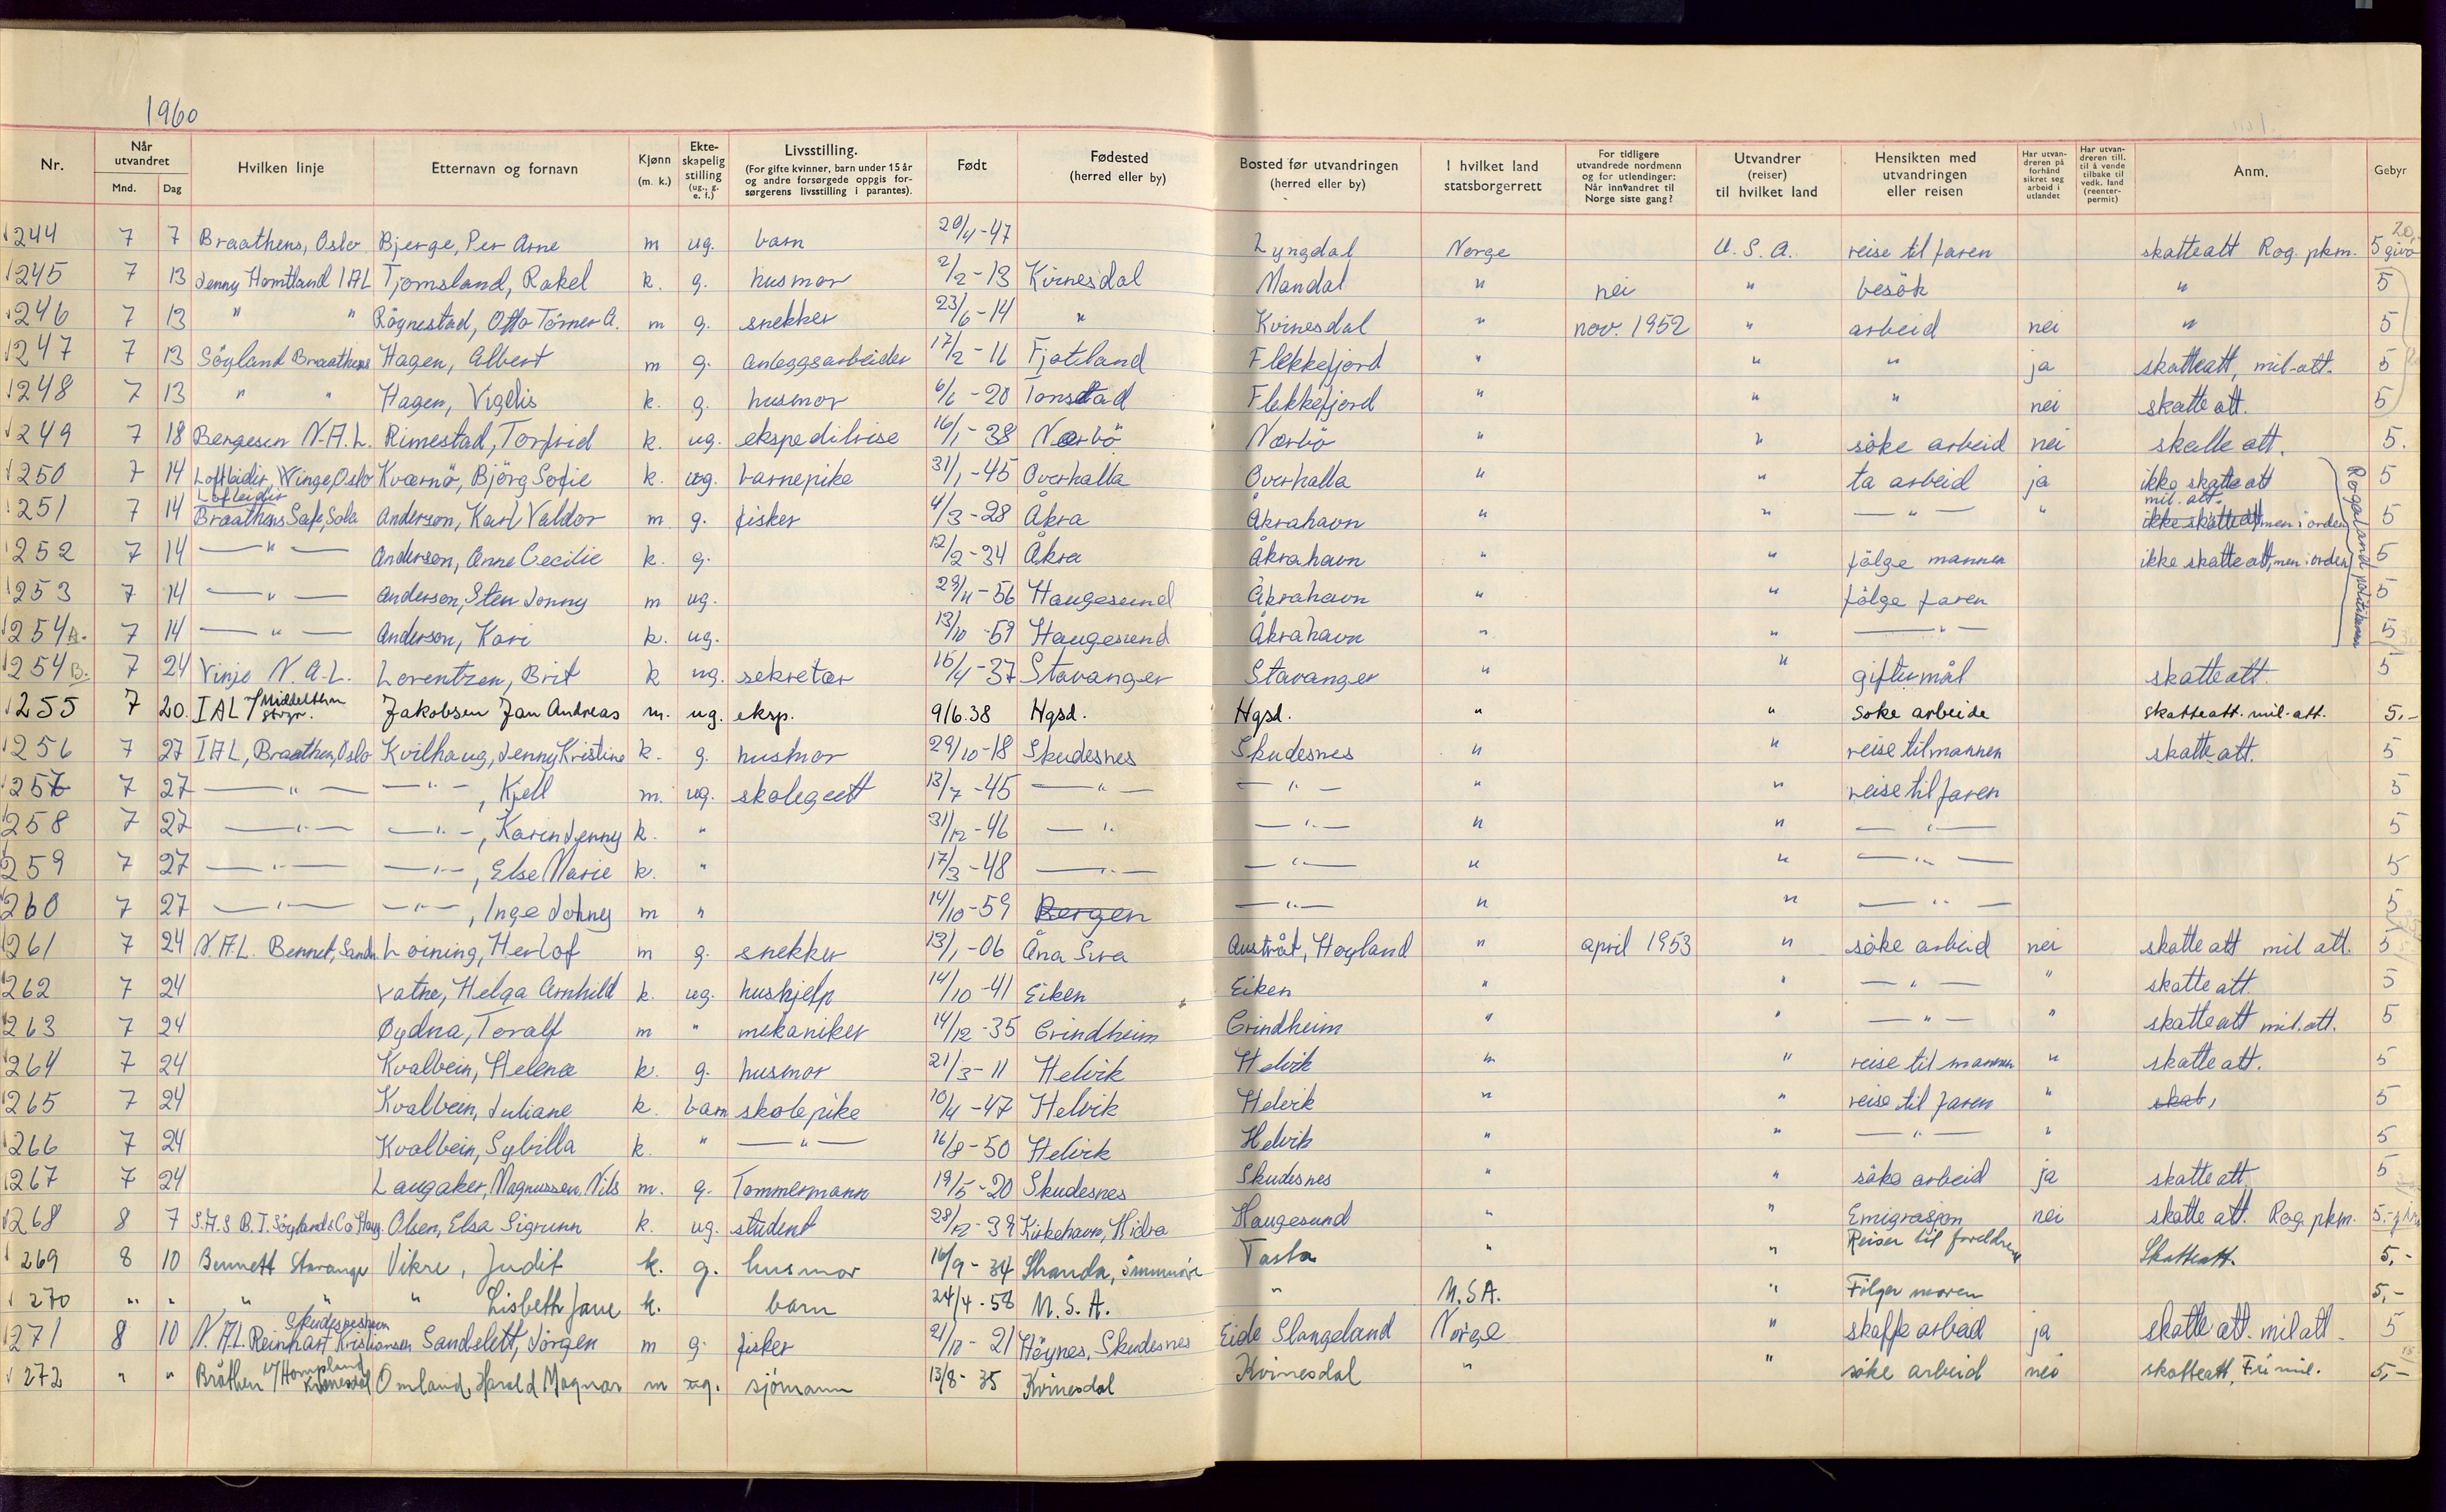 1960
Nr. | Når utvandret Mnd. Dag | Hvilken linje | Etternavn og fornavn | Kjønn (m. k.) | Ekte-skapelig stilling (ug., g. e. f.) | Livsstilling. (For gifte kvinner, barn under 15 år og andre forsørgede oppgis for-sørgerens livsstilling i parantes). | Født | Fødested (herred eller by) | Bosted før utvandringen (herred eller by) | I hvilket land statsborgerrett | For tidligere utvandrede nordmenn og for utlendinger: Når innvandret til Norge siste gang? | Utvandrer (reiser) til hvilket land | Hensikten med utvandringen eller reisen | Har utvan-dreren på forhånd sikret seg arbeid i utlandet | Har utvan-dreren till. til å vende tilbake til vedk. land (reenter-permit) | Anm. | Gebyr
1244 7 7 Braathens, Oslo Bjerge, Per Arne m ug. barn 20/4-47 Lyngdal Norge U.S.A. reise til faren skatteatt Rog. pkm. 5 giro 20,
1245 7 13 Jenny Homtland IAL Tjomsland, Rakel k. g. husmor 2/2-13 Kvinesdal Mandal " nei " besök " 5
1246 7 13 " " Rögnestad, Otto Tömer A. m g. snekker 23/6-14 " Kvinesdal " nov. 1952 " arbeid nei " 5
1247 7 13 Söyland Braathens Hagen, Albert m g. anleggsarbeider 17/2-16 Fjotland Flekkefjord " " " ja skatteatt, mil-att. 5
1248 7 13 " " Hagen, Vigdis k. g. husmor 6/6-20 Tonstad Flekkefjord " " " nei skatte att. 5
1249 7 18 Bergesen N.A.L. Rimestad, Torfrid k. ug. ekspeditrise 16/1-38 Nærbö Nærbö " " söke arbeid nei skatte att. 5.
1250 7 14 Loftleidir, Winge, Oslo Kværnö, Björg Sofie k. ug. barnepike 31/1-45 Overhalla Overhalla " " ta arbeid ja ikke skatte att 5
1251 7 14 Lofleidir Braathens Safe, Sola Anderson, Karl Valdor m. g. fisker 4/3-28 Åkra Åkrahavn " " — " — " mil. att. ikke skatteatt, men i orden 5
1252 7 14 — " — Anderson, Anne Cecilie k. g. 12/2-34 Åkra Åkrahavn " " fölge mannen ikke skatteatt, men i orden 5
1253 7 14 — " — Anderson, Sten Jonny m ug. 29/11-56 Haugesund Åkrahavn " " fölge faren 5
1254A. 7 14 — " — Anderson, Kari k. ug. 13/10-59 Haugesund Åkrahavn " " — " — 5
Rogaland politikammer
1254B. 7 24 Vinje N.A.L. Lorentzen, Brit k ug. sekretær 15/4-37 Stavanger Stavanger " " giftermål skatteatt. 5
1255 7 20. IAL / Middelthon Stvgr. Jakobsen Jan Andreas m. ug. eksp. 9/6.38 Hgsd. Hgsd. " " Söke arbeide skatteatt. mil-att. 5,-
1256 7 27 IAL, Braathen, Oslo Kvilhaug, Jenny Kristine k. g. husmor 29/10-18 Skudesnes Skudesnes " " reise til mannen skatte att. 5
1257 7 27 — " — — " —, Kjell m. ug. skolegutt 13/7-45 — " — — " — " " reise til faren 5
1258 7 27 — " — — " —, Karin Jenny k. " 31/12-46 — " — — " — " " — " — 5
1259 7 27 — " — — " —, Else Marie k. " 17/3-48 — " — — " — " " — " — 5
1260 7 27 — " — — " —, Inge Johny m " 14/10-59 Bergen — " — " " — " — 5
1261 7 24 N.A.L. Bennet, Sandn. Loining, Herlof m g. snekker 13/1-06 Åna Sira Austråt, Høyland " april 1953 " söke arbeid nei skatte att mil att. 5
1262 7 24 Vatne, Helga Arnhild k. ug. hushjelp 14/10-41 Eiken Eiken " " — " — " skatte att. 5
1263 7 24 Øydna, Toralf m " mekaniker 14/12-35 Grindheim Grindheim " " — " — " skatteatt mil.att. 5
1264 7 24 Kvalbein, Helena k. g. husmor 21/3-11 Helvik Helvik " " reise til mannen " skatte att. 5
1265 7 24 Kvalbein, Juliane k. barn skolepike 10/4-47 Helvik Helvik " " reise til faren " skat, 5
1266 7 24 Kvalbein, Sybilla k. " — " — 16/8-50 Helvik Helvik " " — " — " 5
1267 7 24 Laugaker, Magnussen, Nils m. g. Tommermann 19/5-20 Skudesnes Skudesnes " " söke arbeid ja skatte att 5
1268 8 7 S.A.S B.T. Söyland & Co Haug. Olsen, Elsa Sigrunn k. ug. student 28/12-39 Kirkehavn, Hidra Haugesund " " Emigrasjon nei skatte att. Rog. pkm. 5.-
1269 8 10 Bennett Stavanger Vikre, Judit k. g. husmor 16/9-34 Stranda, Sunnmöre Tasta " " Reiser til foreldrene Skatteatt. 5,-
1270 " " " " Lisbeth Jane k. barn 24/4-58 U.S.A. " U.S.A. " Fölger moren 5,-
1271 8 10 N.A.L. Reinhart Kristiansen Skudeneshavn Sandslett, Jörgen m g. fisker 21/10-21 Höynes, Skudesnes Eide Slangeland Norge " skaffe arbeid ja skatte att. mil att. 5
1272 " " Bråthen v/ Hompland Kvinesdal Omland, Harald Magnar m ug. sjömann 13/8-35 Kvinesdal Kvinesdal " " söke arbeid nei skatteatt, Fri mil. 5,-